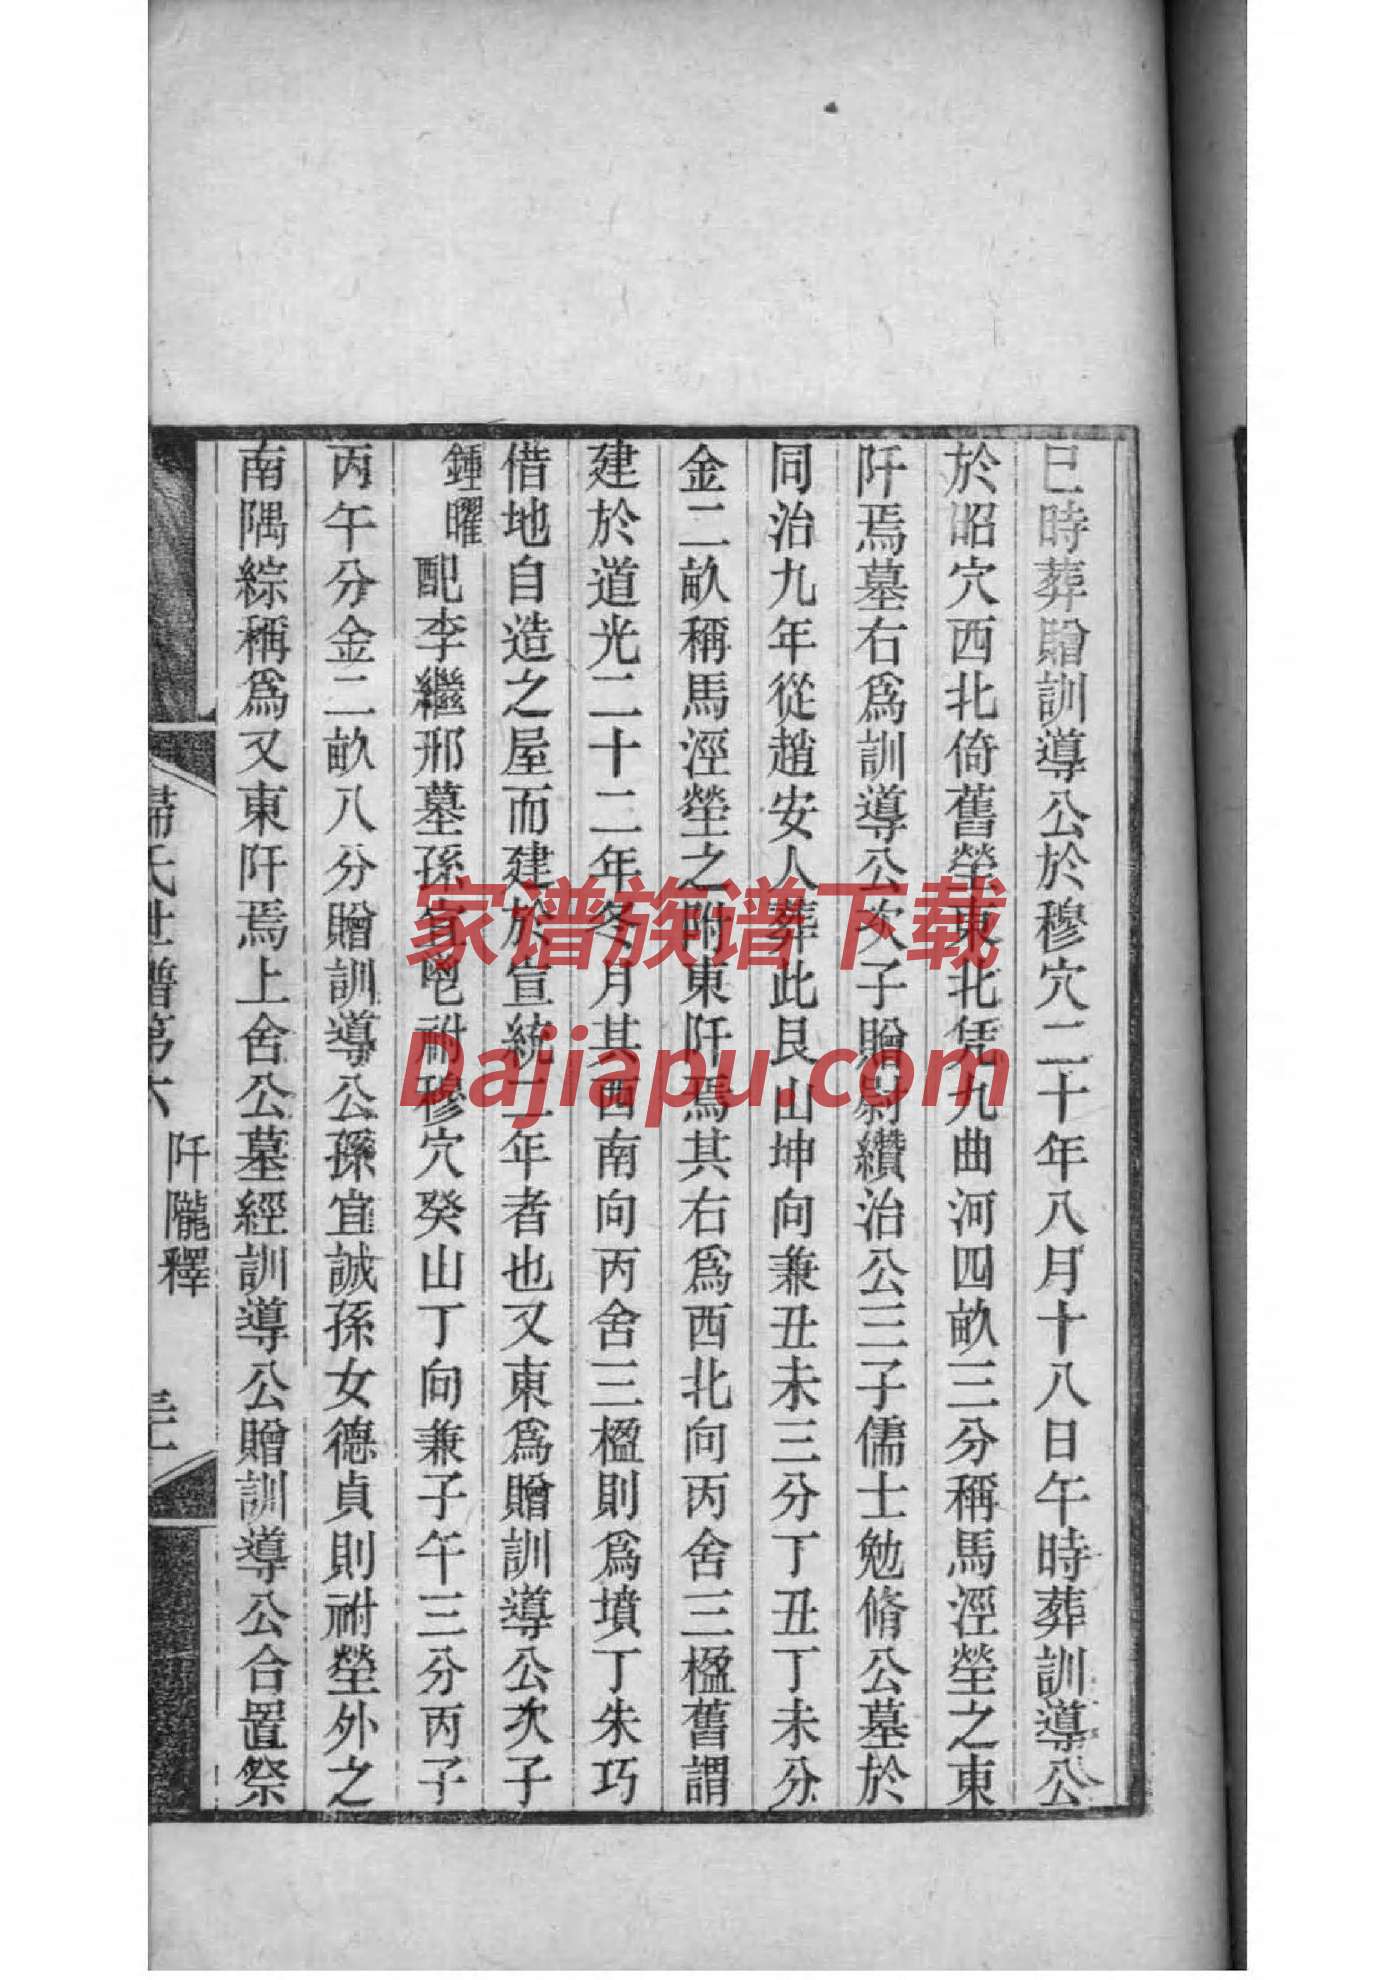 巳時葬贈訓導公於穆穴二十年八月十八日午時葬訓導公
於昭穴西北倚舊塋東北凭九曲河四畝三分稱馬涇塋之東
阡焉墓右爲訓導公次子贈尉纘治公三子儒士勉脩公墓於
同治九年從趙安人葬此艮山坤向兼丑未三分丁丑丁未分
金二畝稱馬涇塋之附東阡焉其右爲西北向丙舍三楹舊謂
建於道光二十二年冬月其西南向丙舍三楹則爲墳丁朱巧
借地自造之屋而建於宣統二年者也又東爲贈訓導公次子
鍾曜配李繼邢墓孫宜祔穆穴癸山丁向兼子午三分丙子
丙午分金二畝八分贈訓導公孫宜誠孫女德貞則祔塋外之
南隅綜稱爲又東阡焉上舍公墓經訓導公贈訓導公合置祭
氏世譜第六
阡隴釋
家谱族谱下载
Dajiapu.com